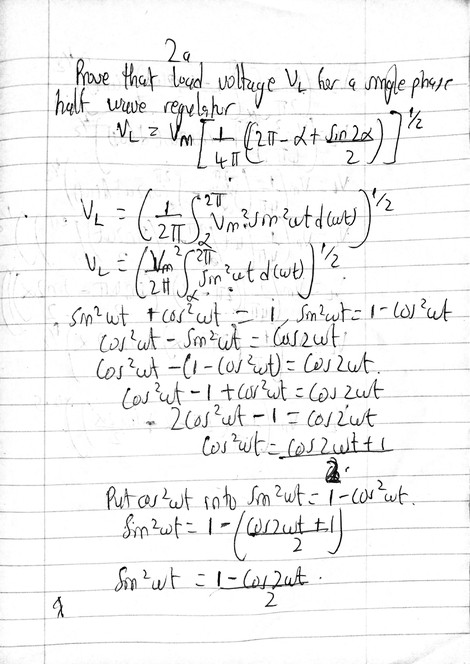 2a
Prove that load voltage V_L for a single phase
half wave regulator
V_L = V_m [1/4π (2π - α + sin2α/2)]^1/2
V_L = (1/2π ∫_α^2π V_m² sin²ωt d(ωt))^1/2
V_L = (V_m²/2π ∫_α^2π sin²ωt d(ωt))^1/2.
Sin²ωt + cos²ωt = 1, sin²ωt = 1 - cos²ωt
Cos²ωt - Sin²ωt = Cos2ωt
Cos²ωt - (1 - cos²ωt) = Cos2ωt.
Cos²ωt - 1 + cos²ωt = Cos2ωt
2Cos²ωt - 1 = cos2ωt
Cos²ωt = cos2ωt+1/2.
Put cos²ωt into Sin²ωt = 1 - cos²ωt.
Sin²ωt = 1 - (cos2ωt + 1/2)
Sin²ωt = 1 - Cos2ωt/2.